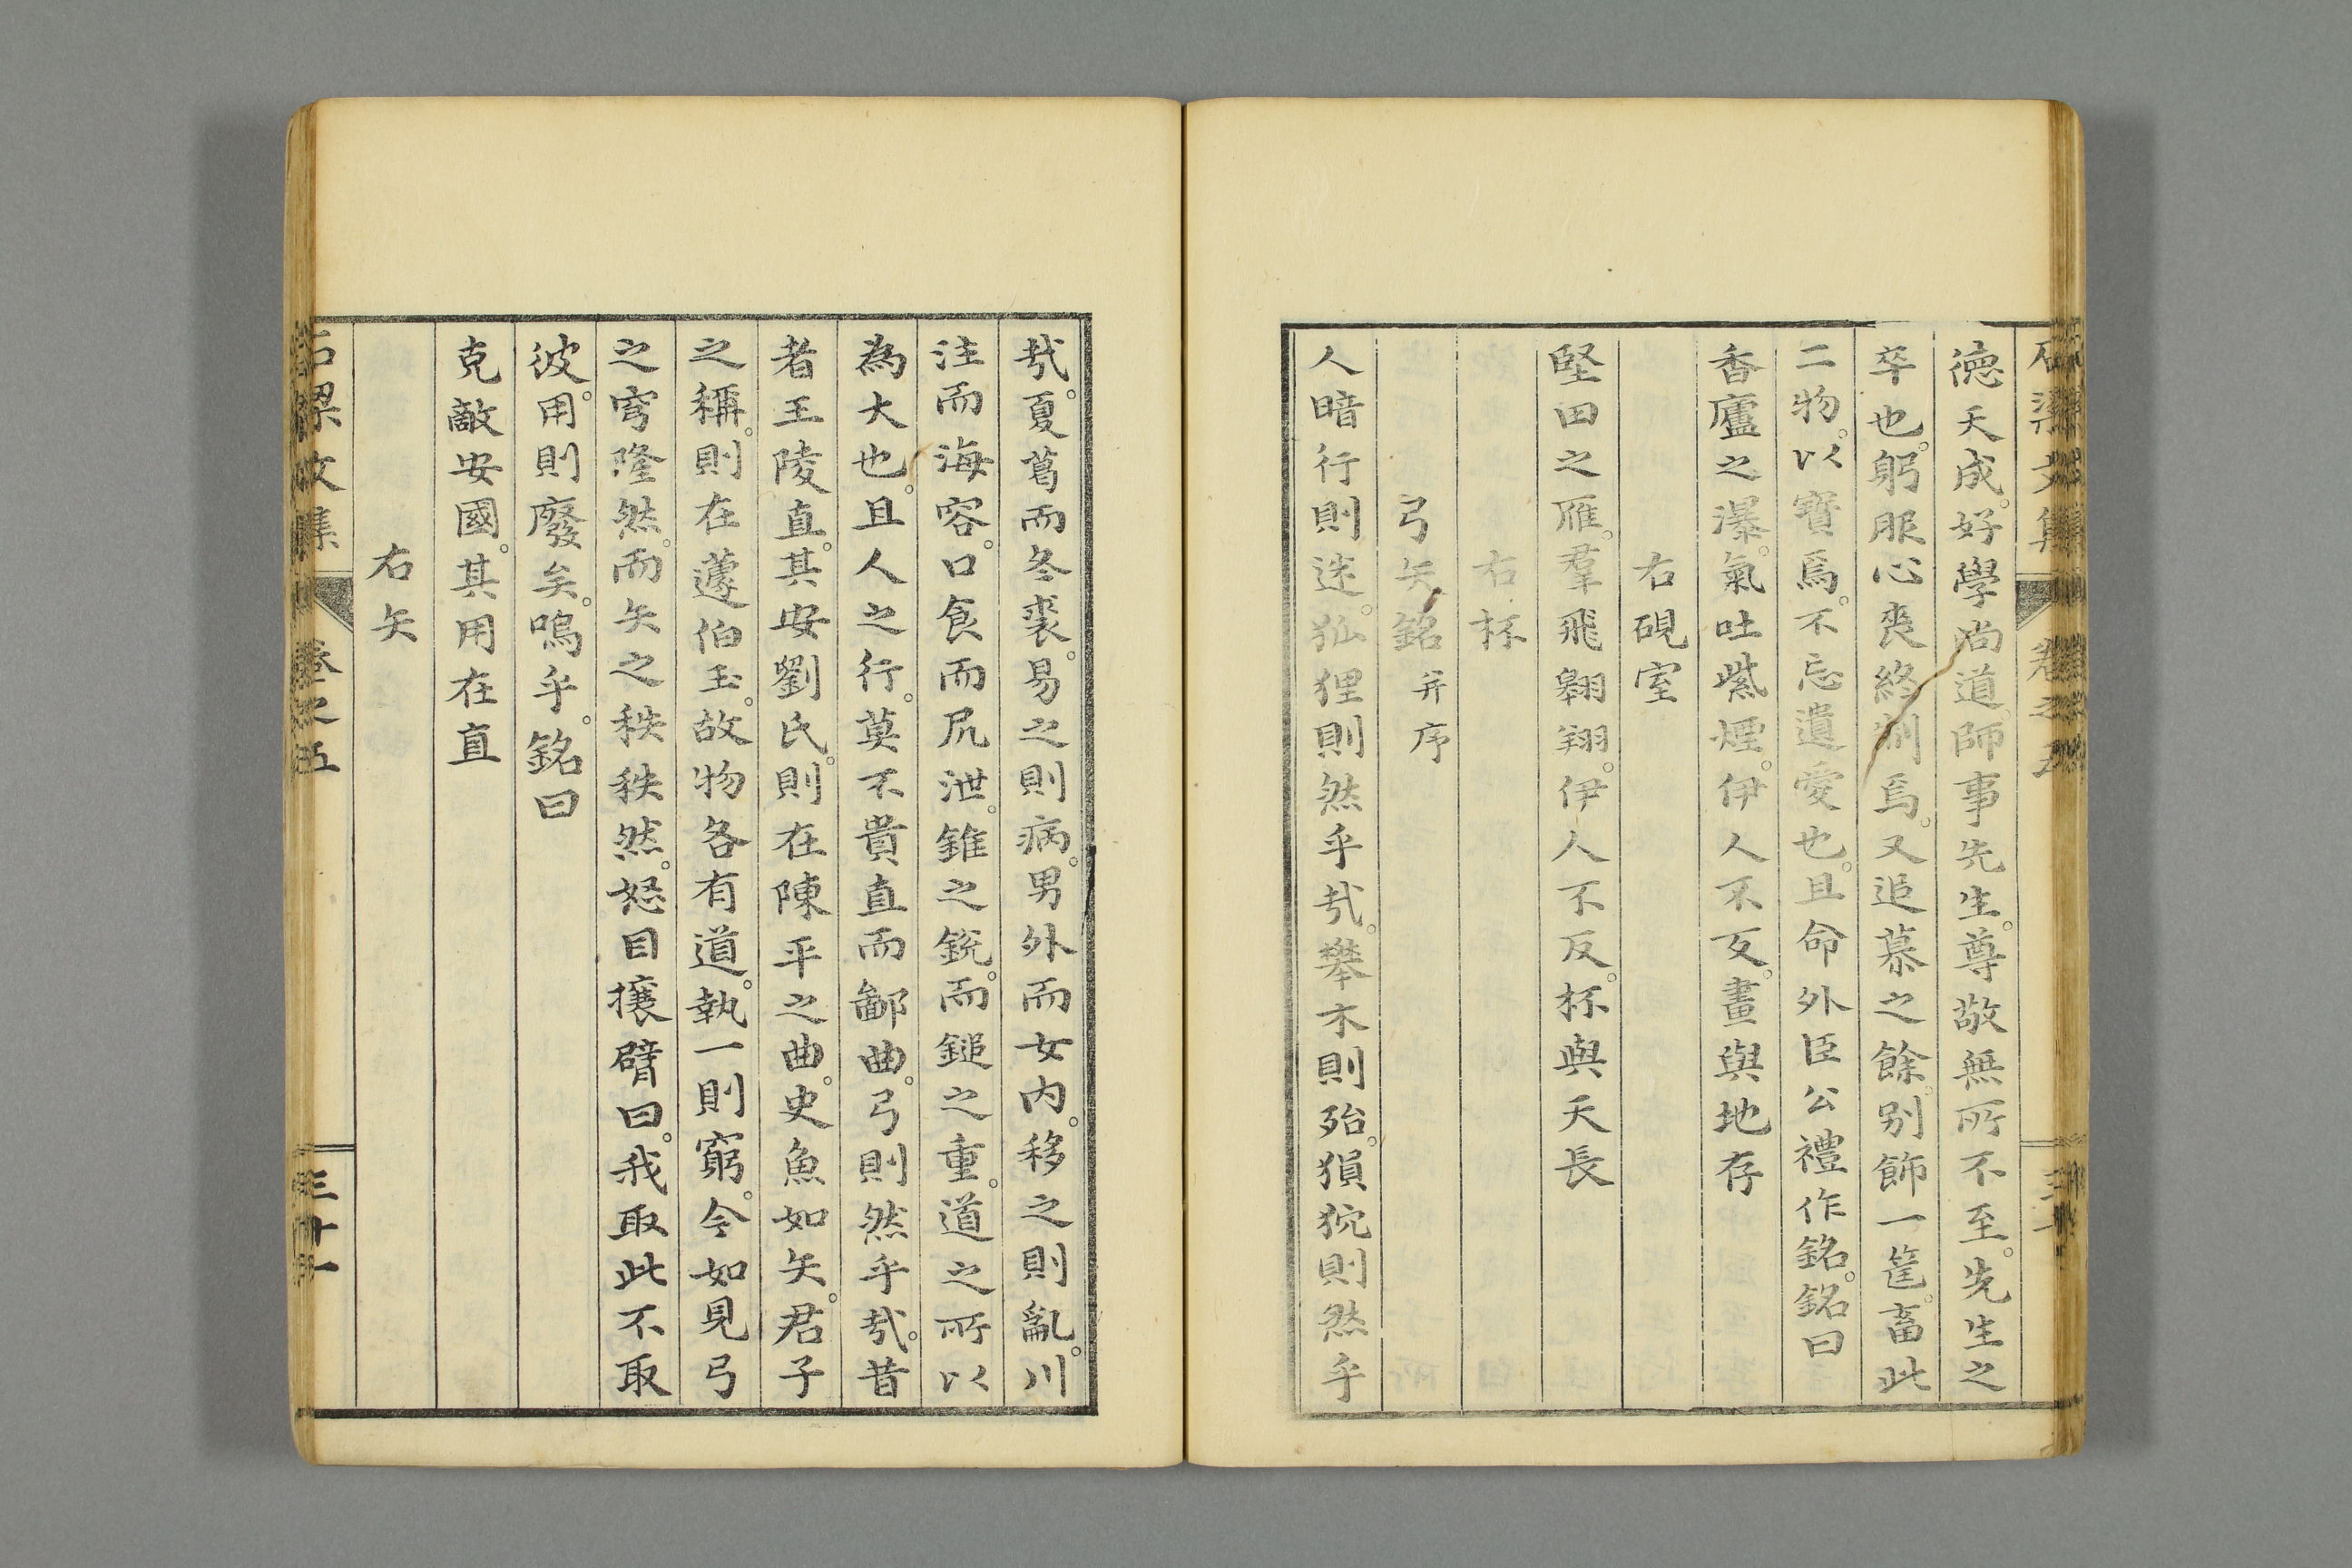 石梁文集 卷之五
德天成。好學尚道。師事先生。尊敬無所不至。先生之
卒也。躬服心喪終制焉。又追慕之餘。別飾一篋。畜此
二物。以寶焉。不忘遺愛也。且命外臣公禮作銘。銘曰
香廬之瀑。氣吐紫煙。伊人不反。畫與地存
右硯室
堅田之雁。羣飛翱翔。伊人不反。杯與天長
右杯
弓矢銘 并序
人暗行則迷。狐狸則然乎哉。攀木則殆。猨狖則然乎
哉。夏葛而冬裘。易之則病。男外而女內。移之則亂。川
注而海容。口食而尻泄。錐之銳。而鎚之重。道之所以
為大也。且人之行。莫不貴直而鄙曲。弓則然乎哉。昔
者王陵直。其安劉氏。則在陳平之曲。史魚如矢。君子
之稱。則在蘧伯玉。故物各有道。執一則窮。今如見弓
之穹隆然。而矢之秩秩然。怒目攘臂曰。我取此不取
彼。用則廢矣。嗚乎。銘曰
克敵安國。其用在直
右矢
石梁文集 卷之五 三十一